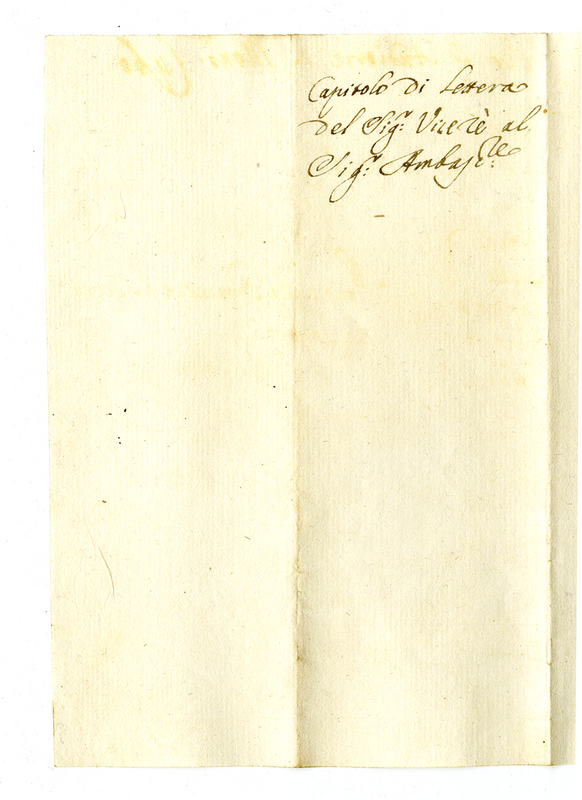 Capitolo di Lettera
del Sig.r Vicerè al
Sig.r Ambas.re